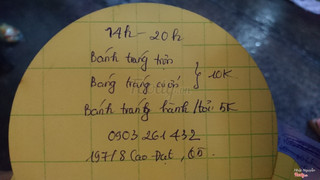 14h - 20h
Bánh tráng trộn
Bang tráng cuốn } 10K
Bánh trang hành/tỏi 5K
0903 261 432
197/8 Cao Đạt, Q5.